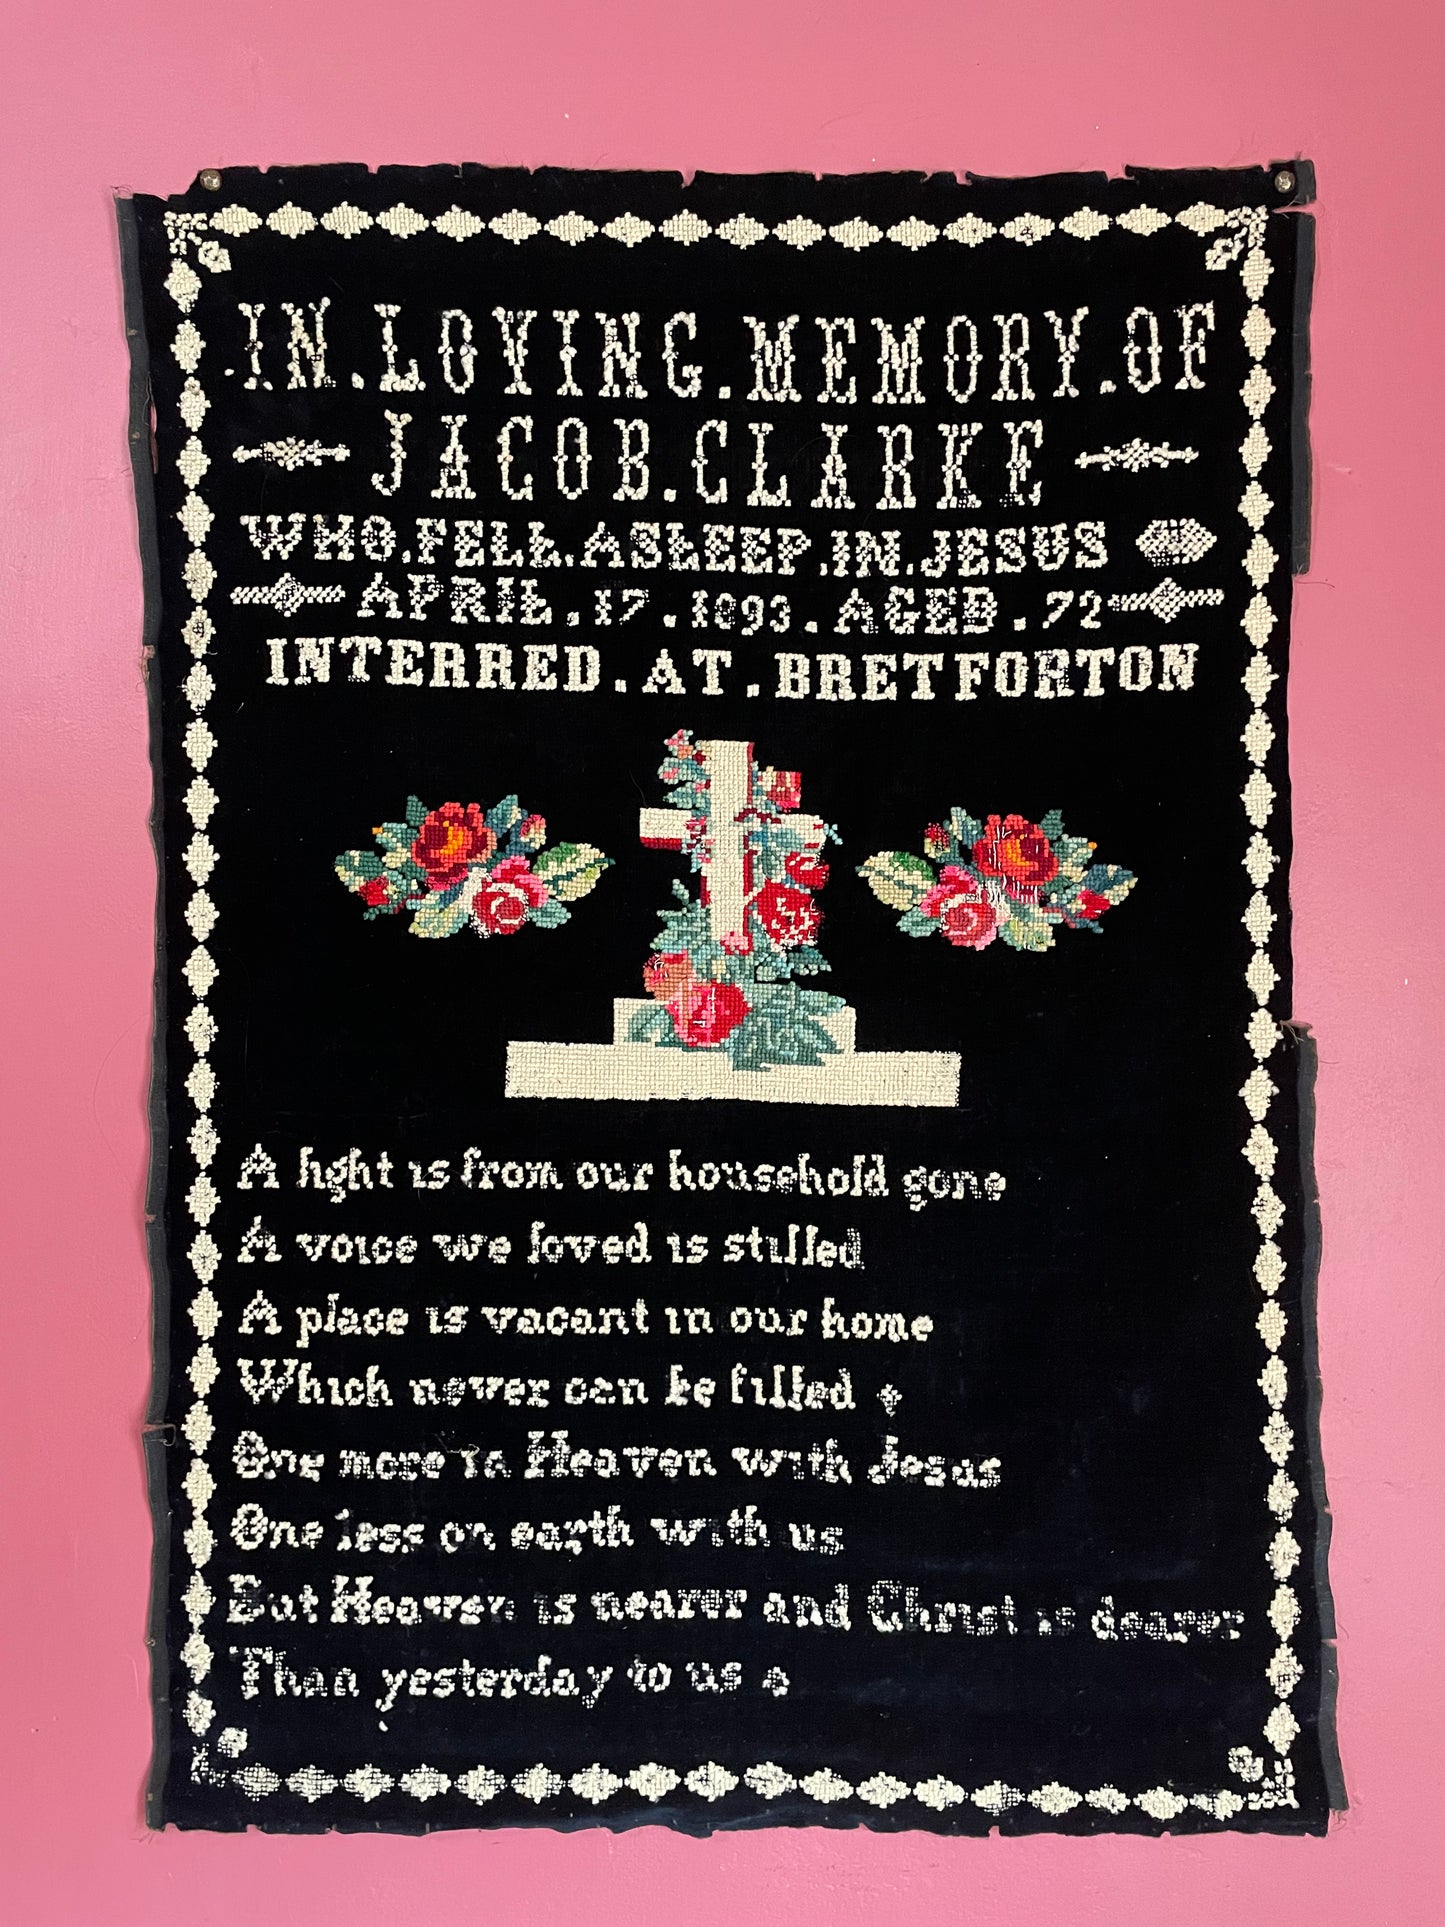 .IN.LOVING.MEMORY.OF
JACOB.CLARKE
WHO.FELL.ASLEEP.IN.JESUS
APRIL.17.1893.AGED.72
INTERRED.AT.BRETFORTON
A light is from our household gone
A voice we loved is stilled
A place is vacant in our home
Which never can be filled
One more in Heaven with Jesus
One less on earth with us
But Heaven is nearer and Christ is dearer
Than yesterday to us